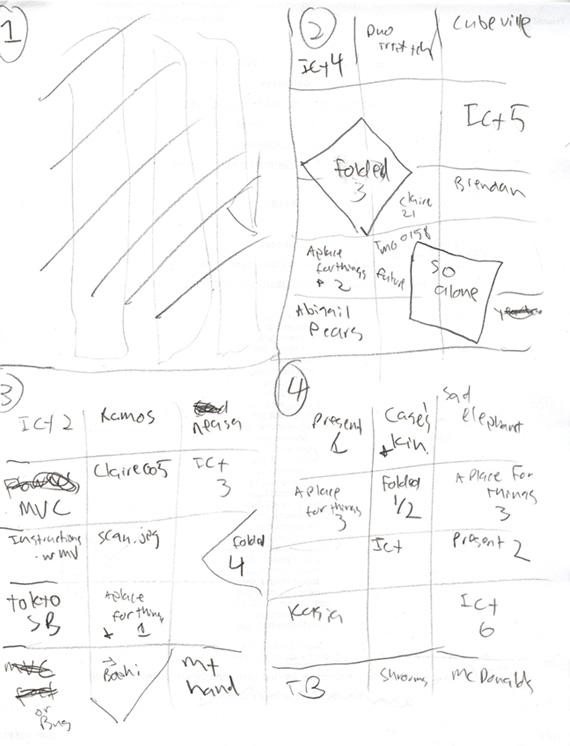 1
2
Ict 4
Duo
Cubeville
Ict 5
Folded
3
Claire
21
Brendan
A place
for things
2
Imo 0198
Future
So
alone
Abigail
Pears
3
Ict 2
Ramos
MVC
Claire005
Ict
3
Instructions
scan.jpg
Folded
4
Tokyo
SB
A place
for things
1
or
Bug
Boshi
Mt
hand
4
Present
1
Case's
kin.
Sad
Elephant
A place
for things
3
Folded
1/2
A Place For
things
3
Ict
Present 2
Kasia
Ict
6
TB
Shrooms
McDonalds